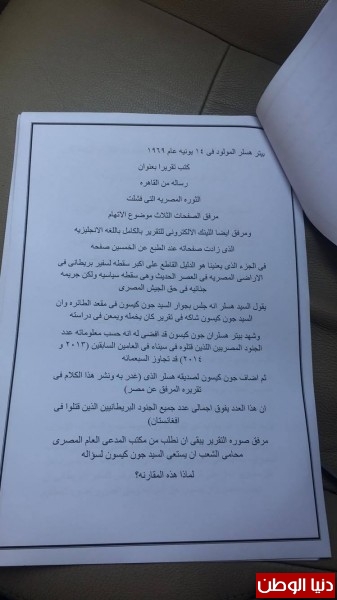 بيتر هسلر المولود فى ١٤ يونيه عام ١٩٦٩
كتب تقريرا بعنوان
رساله من القاهره
الثوره المصريه التى فشلت
مرفق الصفحات الثلاث موضوع الاتهام
ومرفق ايضا اللينك الالكترونى للتقرير بالكامل باللغه الانجليزيه
الذى زادت صفحاته عند الطبع عن الخمسين صفحه
فى الجزء الذى يعنينا هو الدليل القاطع على اكبر سقطه لسفير بريطانى فى
الاراضى المصريه فى العصر الحديث وهى سقطه سياسيه ولكن جريمه
جنائيه فى حق الجيش المصرى
يقول السيد هسلر انه جلس بجوار السيد جون كيسون فى مقعد الطائره وان
السيد جون كيسون شاكه فى تقرير كان يخطه ويمعن فى دراسته
وشهد بيتر هسلران جون كيسون قد افضى له انه حسب معلوماته عدد
الجنود المصريين اللذين قتلوه فى سيناء فى العامين السابقين (٢٠١٣ و
٢٠١٤) قد تجاوز السبعمائه
ثم اضاف جون كيسون لصديقه هسلر الذى (غدر به ونشر هذا الكلام فى
تقريره المرفق عن مصر)
ان هذا العدد يفوق اجمالى عدد جميع الجنود البريطانيين الذين قتلوا فى
افغانستان)
مرفق صوره التقرير يبقى ان نطلب من مكتب المدعى العام المصرى
محامى الشعب ان يستعى السيد جون كيسون لسؤاله
لماذا هذه المقارنه؟
دنيا الوطن